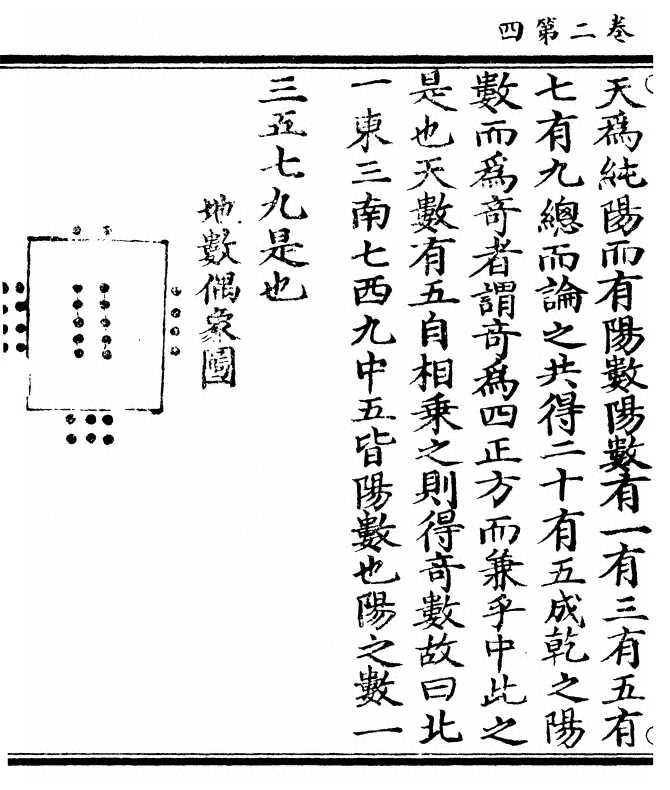 四第二卷
天為純陽而有陽數陽數有一有三有五有
七有九總而論之共得二十有五成乾之陽
數而為奇者謂奇為四正方而兼乎中此之
是也天數有五自相乘之則得奇數故曰北
一東三南七西九中五皆陽數也陽之數一
三五七九是也
地數偶象圖